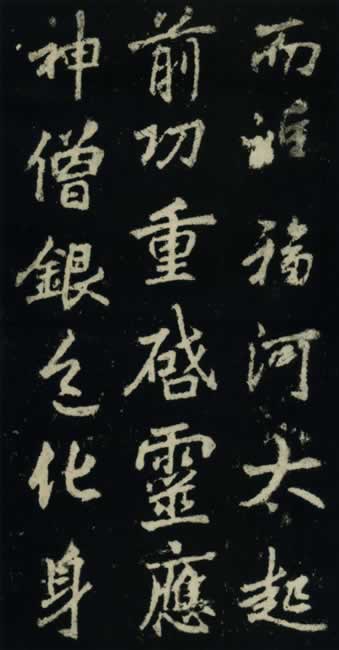 而福河大起
前功重啓靈應
神僧銀色化身